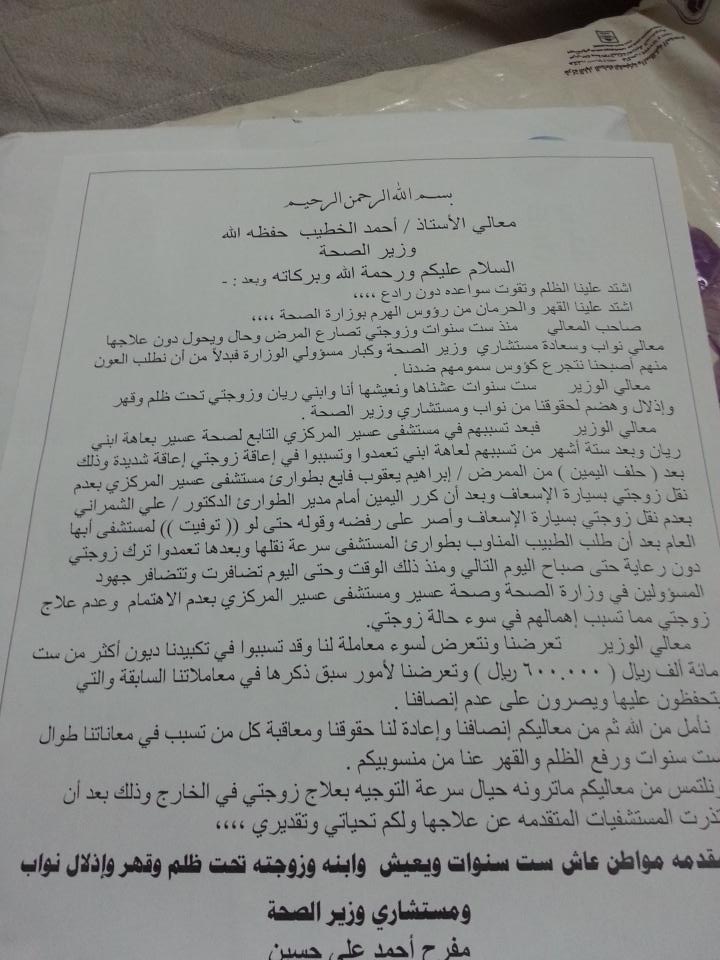 بسم الله الرحمن الرحيم
معالي الأستاذ / أحمد الخطيب حفظه الله
وزير الصحة
السلام عليكم ورحمة الله وبركاته وبعد : -
اشتد علينا الظلم وتقوت سواعده دون رادع ،،،،
اشتد علينا القهر والحرمان من رؤوس الهرم بوزارة الصحة ،،،،
صاحب المعالي منذ ست سنوات وزوجتي تصارع المرض وحال ويحول دون علاجها
معالي نواب وسعادة مستشاري وزير الصحة وكبار مسؤولي الوزارة فبدلاً من أن نطلب العون
منهم أصبحنا نتجرع كؤوس سمومهم ضدنا .
معالي الوزير ست سنوات عشناها ونعيشها أنا وابني ريان وزوجتي تحت ظلم وقهر
وإذلال وهضم لحقوقنا من نواب ومستشاري وزير الصحة .
معالي الوزير فبعد تسببهم في مستشفى عسير المركزي التابع لصحة عسير بعاهة ابني
ريان وبعد ستة أشهر من تسببهم لعاهة ابني تعمدوا وتسببوا في إعاقة زوجتي إعاقة شديدة وذلك
بعد ( حلف اليمين ) من الممرض / إبراهيم يعقوب فايع بطوارئ مستشفى عسير المركزي بعدم
نقل زوجتي بسيارة الإسعاف وبعد أن كرر اليمين أمام مدير الطوارئ الدكتور / علي الشمراني
بعدم نقل زوجتي بسيارة الإسعاف وأصر على رفضه وقوله حتى لو (( توفيت )) لمستشفى أبها
العام بعد أن طلب الطبيب المناوب بطوارئ المستشفى سرعة نقلها وبعدها تعمدوا ترك زوجتي
دون رعاية حتى صباح اليوم التالي ومنذ ذلك الوقت وحتى اليوم تضافرت وتتضافر جهود
المسؤولين في وزارة الصحة وصحة عسير ومستشفى عسير المركزي بعدم الاهتمام وعدم علاج
زوجتي مما تسبب إهمالهم في سوء حالة زوجتي.
معالي الوزير تعرضنا ونتعرض لسوء معاملة لنا وقد تسببوا في تكبيدنا ديون أكثر من ست
مائة ألف ريال ( ٦٠٠.٠٠٠ ريال ) وتعرضنا لأمور سبق ذكرها في معاملاتنا السابقة والتي
يتحفظون عليها ويصرون على عدم إنصافنا .
نأمل من الله ثم من معاليكم إنصافنا وإعادة لنا حقوقنا ومعاقبة كل من تسبب في معاناتنا طوال
ست سنوات ورفع الظلم والقهر عنا من منسوبيكم .
ونلتمس من معاليكم ماترونه حيال سرعة التوجيه بعلاج زوجتي في الخارج وذلك بعد أن
تذرت المستشفيات المتقدمه عن علاجها ولكم تحياتي وتقديري ،،،،
مقدمه مواطن عاش ست سنوات ويعيش وابنه وزوجته تحت ظلم وقهر وإذلال نواب
ومستشاري وزير الصحة
مفرح أحمد علي حسين